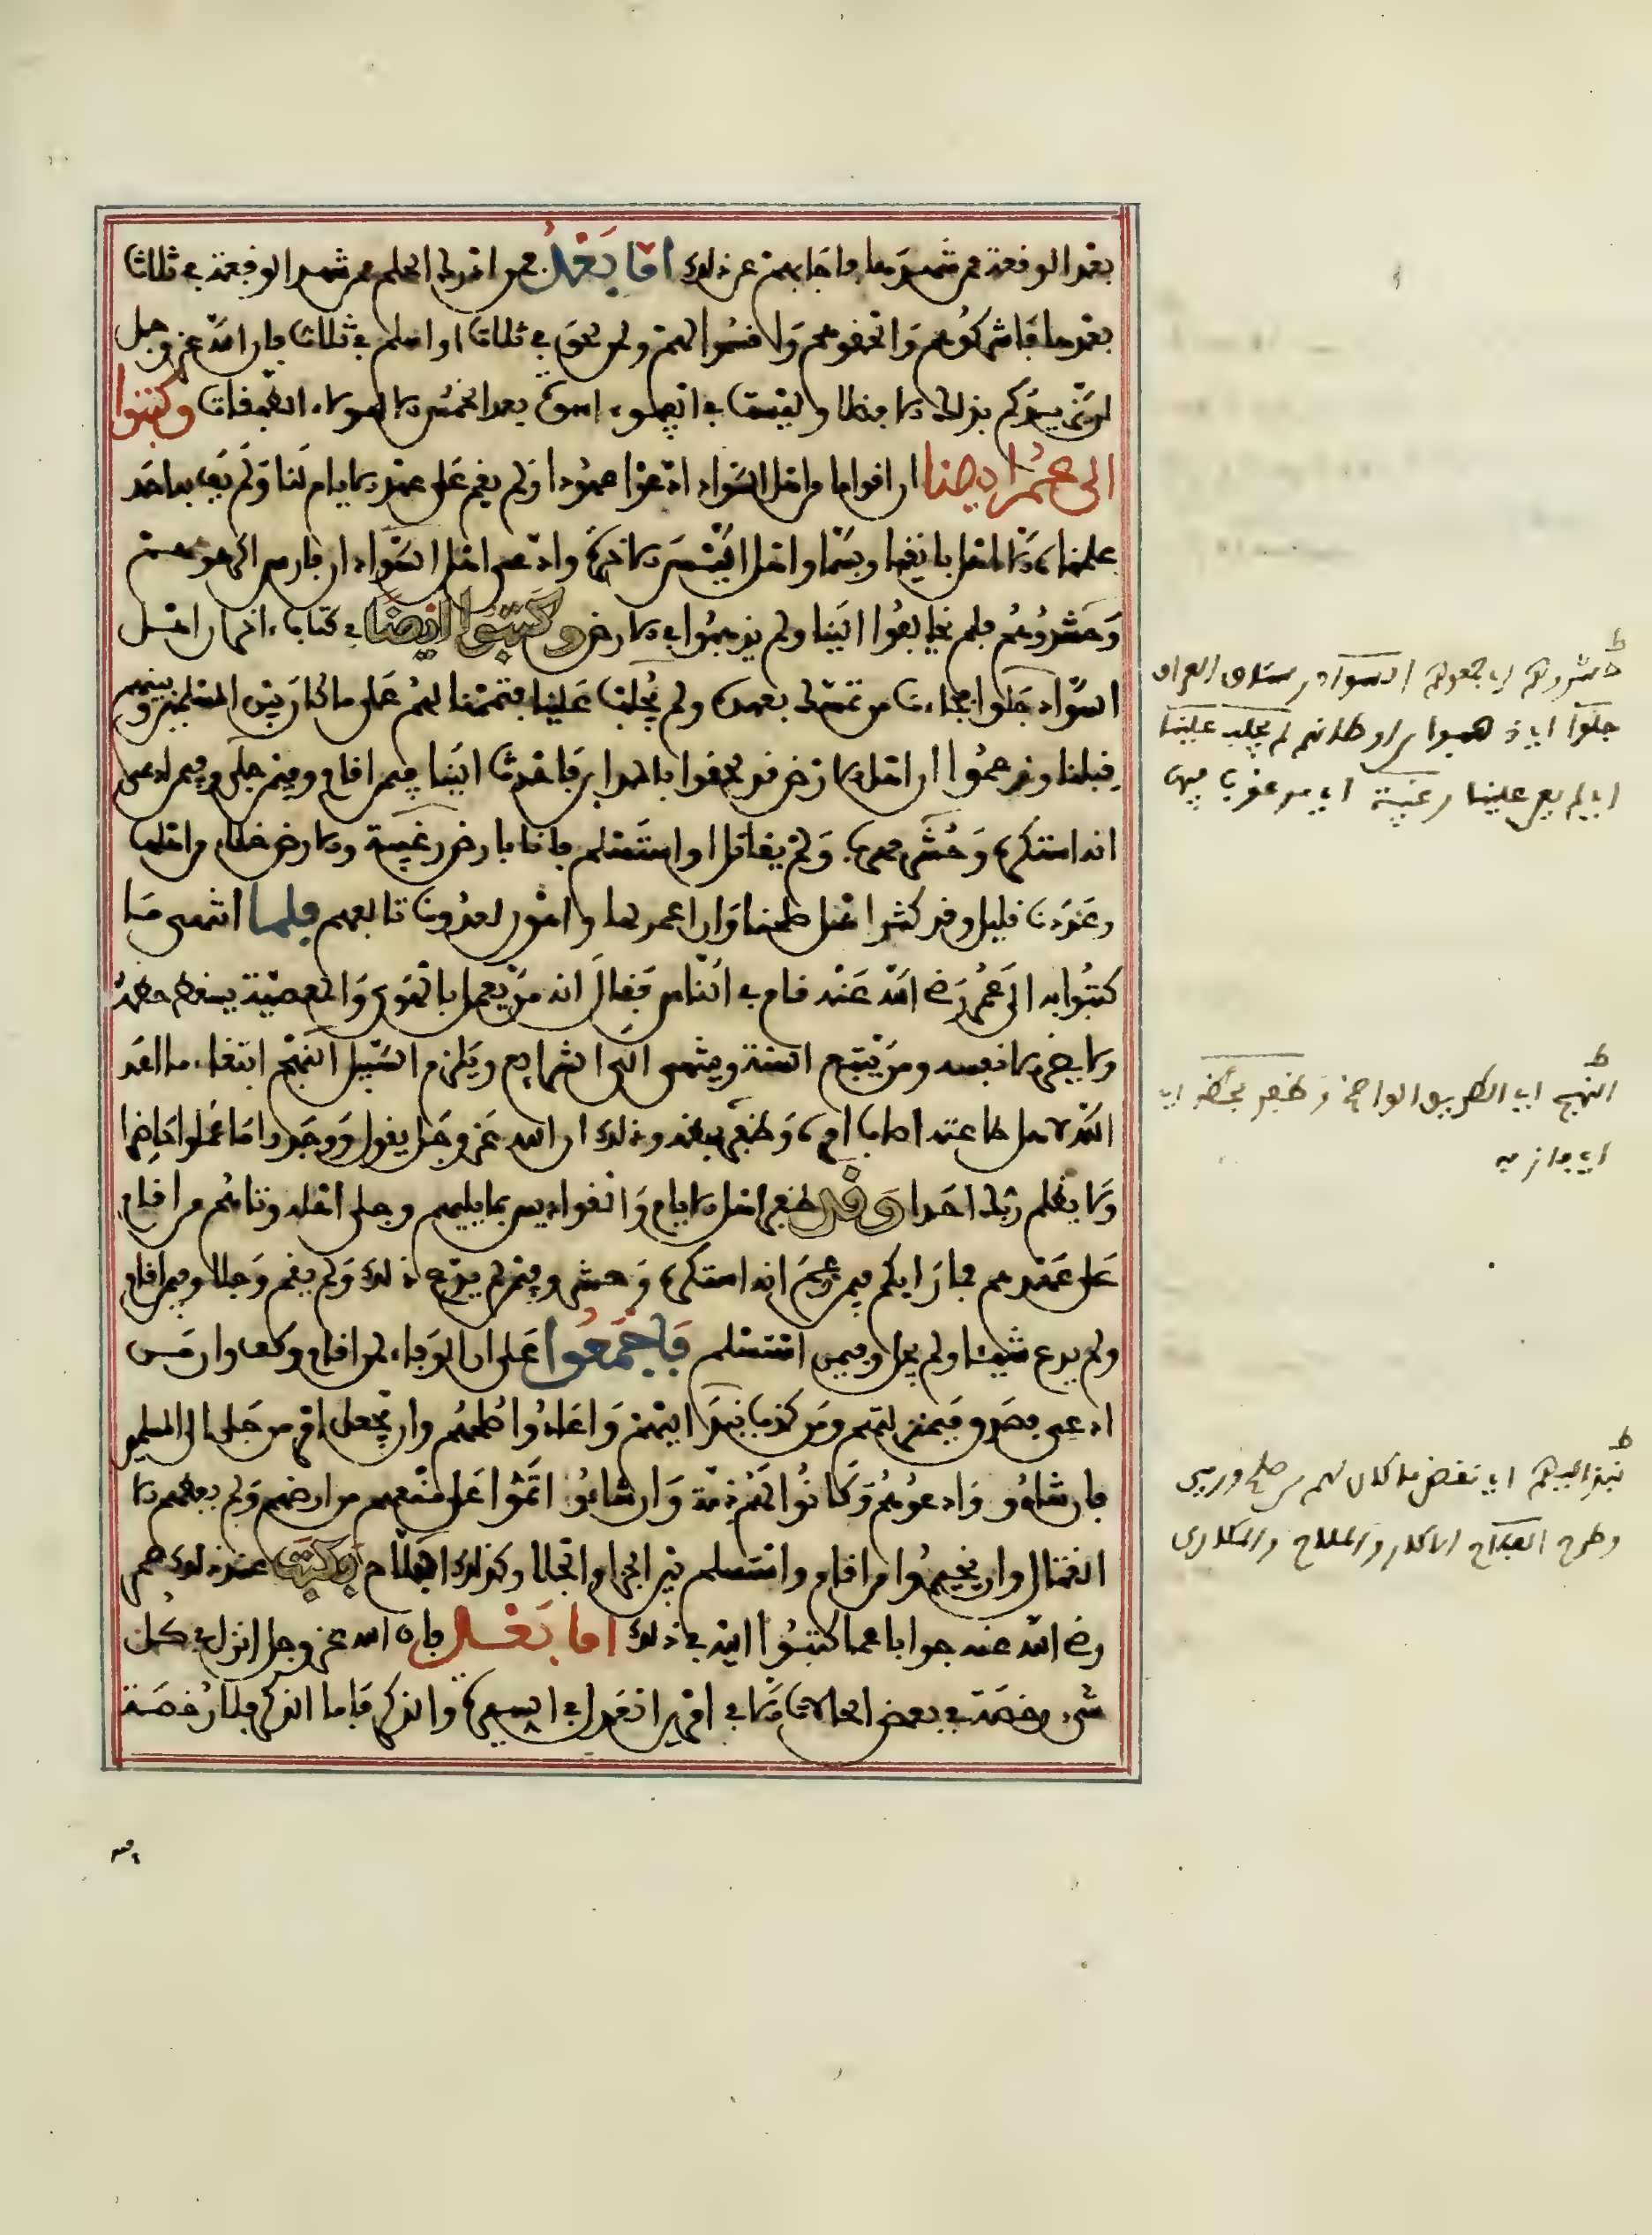 بعد الوقعة ممن شهدها فأجابهم عن ذلك أما بعد فمن أدرك الحلم ممن شهد الوقعة في ثلاث
بعدها فأشركوهم وألحقوهم وأقسموا لهم ومن لحق في ثلاث أو أسلم في ثلاث فإن الله عز وجل
لن يزيدكم بذلك إلا فضلا وليست في الفيء أسوة بعد الخمس إلا لهؤلاء الطبقات وكتبوا
إلى عمر أيضا أن أقواما من أهل السواد ادعوا عهودا ولم يقم على عهد الأيام لنا ولم يف به أحد
علمناه إلا أهل بانقيا وبسما وأهل أليس الآخرة وادعى أهل السواد أن فارس أكرهوهم
وحشروهم فلم يخالفوا إلينا ولم يذهبوا في الأرض وكتبوا أيضا في كتاب آخر إن أهل
السواد جلوا فجاءنا من تمسك بعهده ولم يجلب علينا فتممنا لهم على ما كان بين المسلمين وبينهم
قبلنا وزعموا أن أهل الأرض قد لحقوا بالمدائن فأحدث إلينا فيمن أقام وفيمن جلى وفيمن ادعى
أنه استكره وحشر فهرب ولم يقاتل أو استسلم فإنا بأرض رغيبة والأرض خلاء من أهلها
وعددنا قليل وقد كثر أهل صلحنا وإن أعمر لها وأوهن لعدونا تألفهم فلما انتهى ما
كتبوا به إلى عمر رضي الله عنه قام في الناس فقال إنه من يعمل بالهوى والمعصية يسقط حظه
ولا يضر إلا نفسه ومن يتبع السنة وينتهي إلى الشرائع ويلزم السبيل النهج ابتغاء ما عند
الله لأهل طاعته أصاب أمره وظفر بحظه وذلك أن الله عز وجل يقول ووجدوا ما عملوا حاضرا
ولا يظلم ربك أحدا وقد ظفر أهل الأيام والقوادس بما يليهم وجلى أهله وأتاهم من أقام
على عهدهم فما رأيكم فيمن زعم أنه استكره وحشر وفيمن لم يدع ذلك ولم يقم وجلا وفيمن أقام
ولم يدع شيئا ولم يجل وفيمن استسلم فأجمعوا على أن الوفاء لمن أقام وكف وأن من
ادعى فصدق فبمنزلتهم ومن كذب نبذ إليهم وأعادوا صلحهم وأن يجعل أمر من جلى إلى المسلمين
فإن شاءوا وادعوهم وكانوا لهم ذمة وإن شاءوا أتموا على منعهم من أرضهم ولم يعطوهم إلا
القتال وأن يخيروا من أقام واستسلم بين الجزاء والجلاء وكذلك الفلاح فكتب عند ذلك عمر
رضي الله عنه جوابا عما كتبوا إليه في ذلك أما بعد فإن الله عز وجل أنزل في كل
شيء رخصة في بعض الحالات إلا في أمرين العدل في السيرة والذكر فأما الذكر فلا رخصة
ط
حشروهم اي جمعوهم السواد رستاق العراق
جلوا اي ذهبوا من اوطانهم لم يجلب علينا
اي لم يعن علينا رغيبة اي مرغوب فيها
ط
النهج اي الطريق الواضح وظفر بحظه اي
اي فاز به
ط
نبذ اليهم اي نقض ما كان لهم من صلح ورمي
وطرح الفلاح الاكار والملاح والمكاري